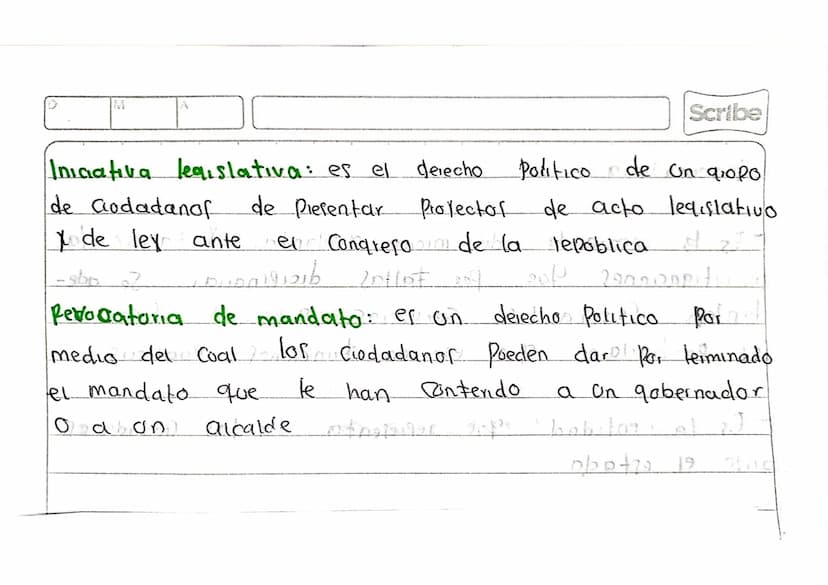 D M A
Scribe
Iniciativa legislativa: es el derecho Político de un grupo
de Ciudadanos de Presentar Proyectos de acto legislativo
y de ley ante el Congreso de la republica
Revocatoria de mandato: es un derecho Politico Por
medio del Cual los Ciudadanos Pueden dar Por terminado
el mandato que le han Contendo a un gobernador
O a un alcalde